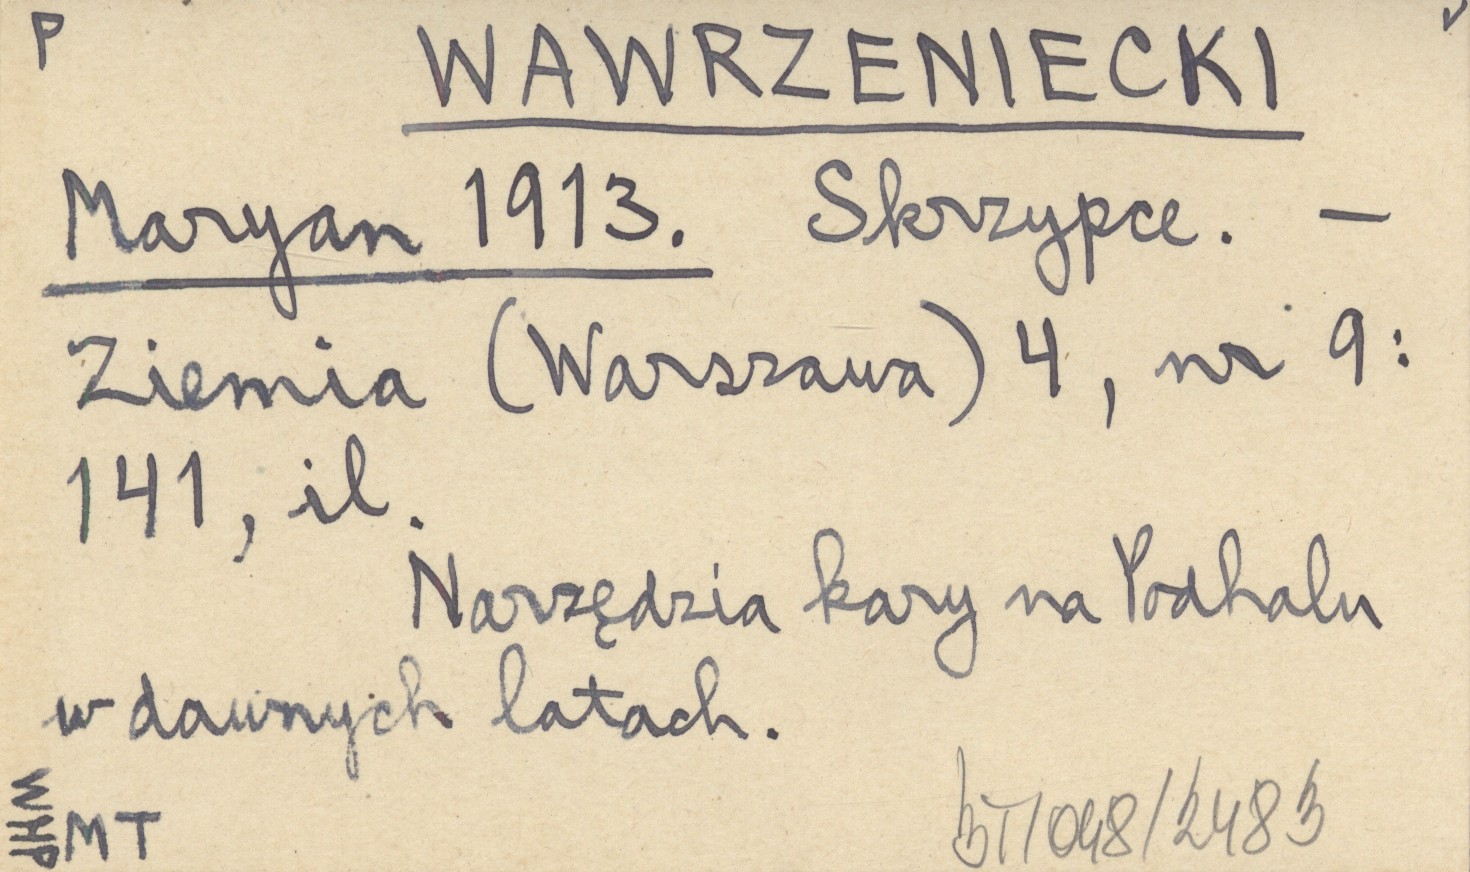 P
WAWRZENIECKI
Maryan 1913. Skrzypce. —
Ziemia (Warszawa) 4, nr 9:
141, il.
Narzędzia kary na Podhalu
w dawnych latach.
WHP
MT
BT/048/2483